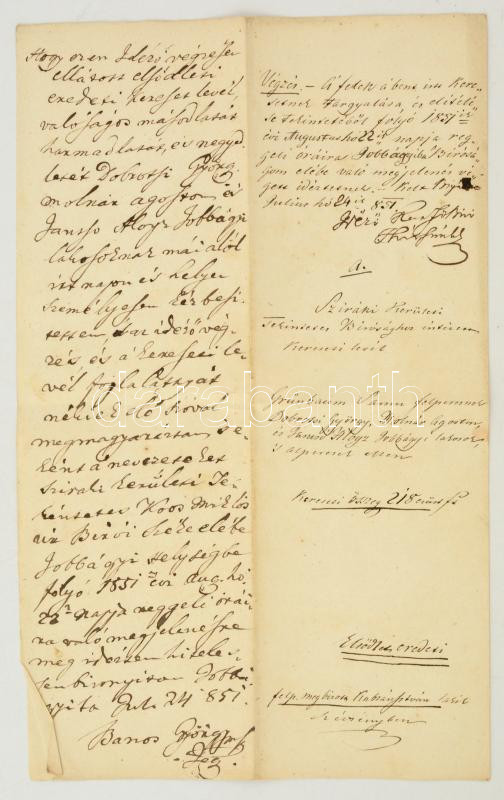 Hogy ezen Idéző végzéssel
ellátott elsődleti
eredeti kereset levél,
valóságos másodlatát
harmadlatát, és negyed
letét Dobrotsi György
molnár Agoston és
Jansso Aloyz Jobbágyi
lakosoknak mái alól
irt napon és helyen
személyesen kézbesi-
tettem, s az idéző vég-
zés és a kereseti le-
vél foglalattyát
nékiek élő szóval
megmagyaráztam
ként a nevezetteket
sziráki kerületi Te-
kéntetes Koós Miklós
úr Birói széke elébe
Jobbágyi Helységbe
folyó 1851 évi aug. hó
22 napja reggeli órái-
ra való megjelenésre
megidéztem hitele-
sen bizonyitom Jobbá-
gyiba Jul. 24 851.
Banos György
Végzés. – A felek a bent irt Kere-
setnek tárgyalása, és elitélé-
se tekintetéből folyó 1851 ik
évi Augustus hó 22 ik napja reg-
geli óráira Jobbágyiba Birósá-
gom elébe való megjelenés vé-
gett idéztetnek. Kelt
Julius hó 24 851.
A.
Sziráki Kerületi
Tekintetes Birósághoz intézett
Kereseti levél
Grünbaum Samu felperesnek
Dobrotsi György, Molnár Agoston,
és Jansso Aloyz Jobbágyi lakosok,
s alperesek ellen
Kereseti összeg 218
Elsődleti eredeti
felp. megbizotta Kabzán István
Szécsényben
darabanth